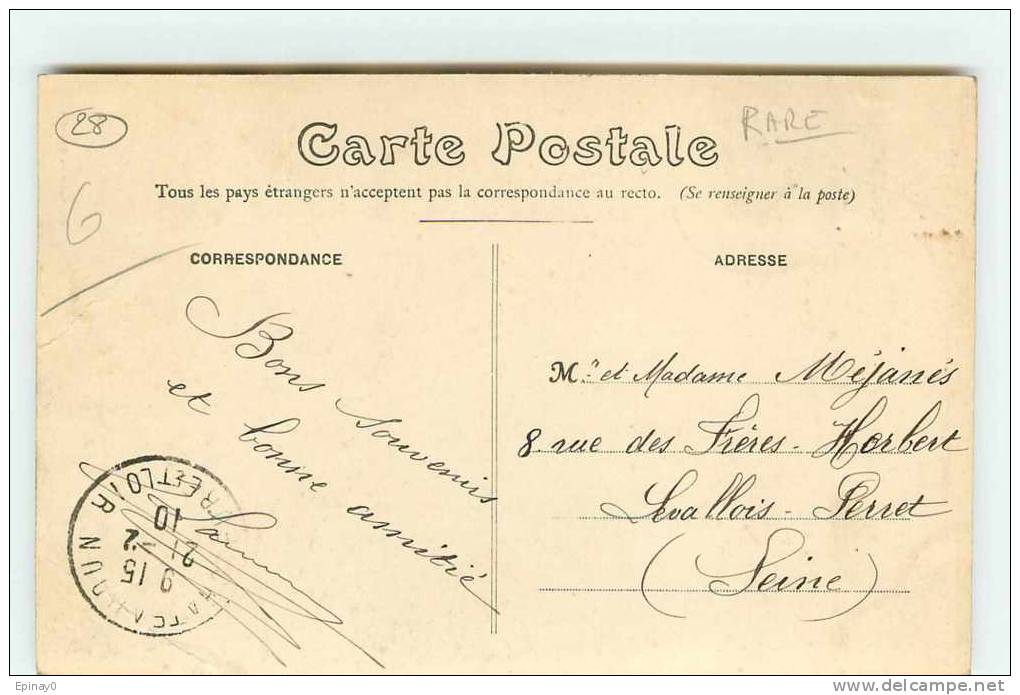 28
RARE
Carte Postale
Tous les pays étrangers n'acceptent pas la correspondance au recto. (Se renseigner à la poste)
6
CORRESPONDANCE
Bons Souvenirs
et bonne amitié
ADRESSE
Mr et Madame Méjanés
8. rue des Frères - Horbert
Levallois - Perret
(Seine)
CHATEAUDUN
9 15
21 - 2
10
EURE ET LOIR
Epinay0
www.delcampe.net